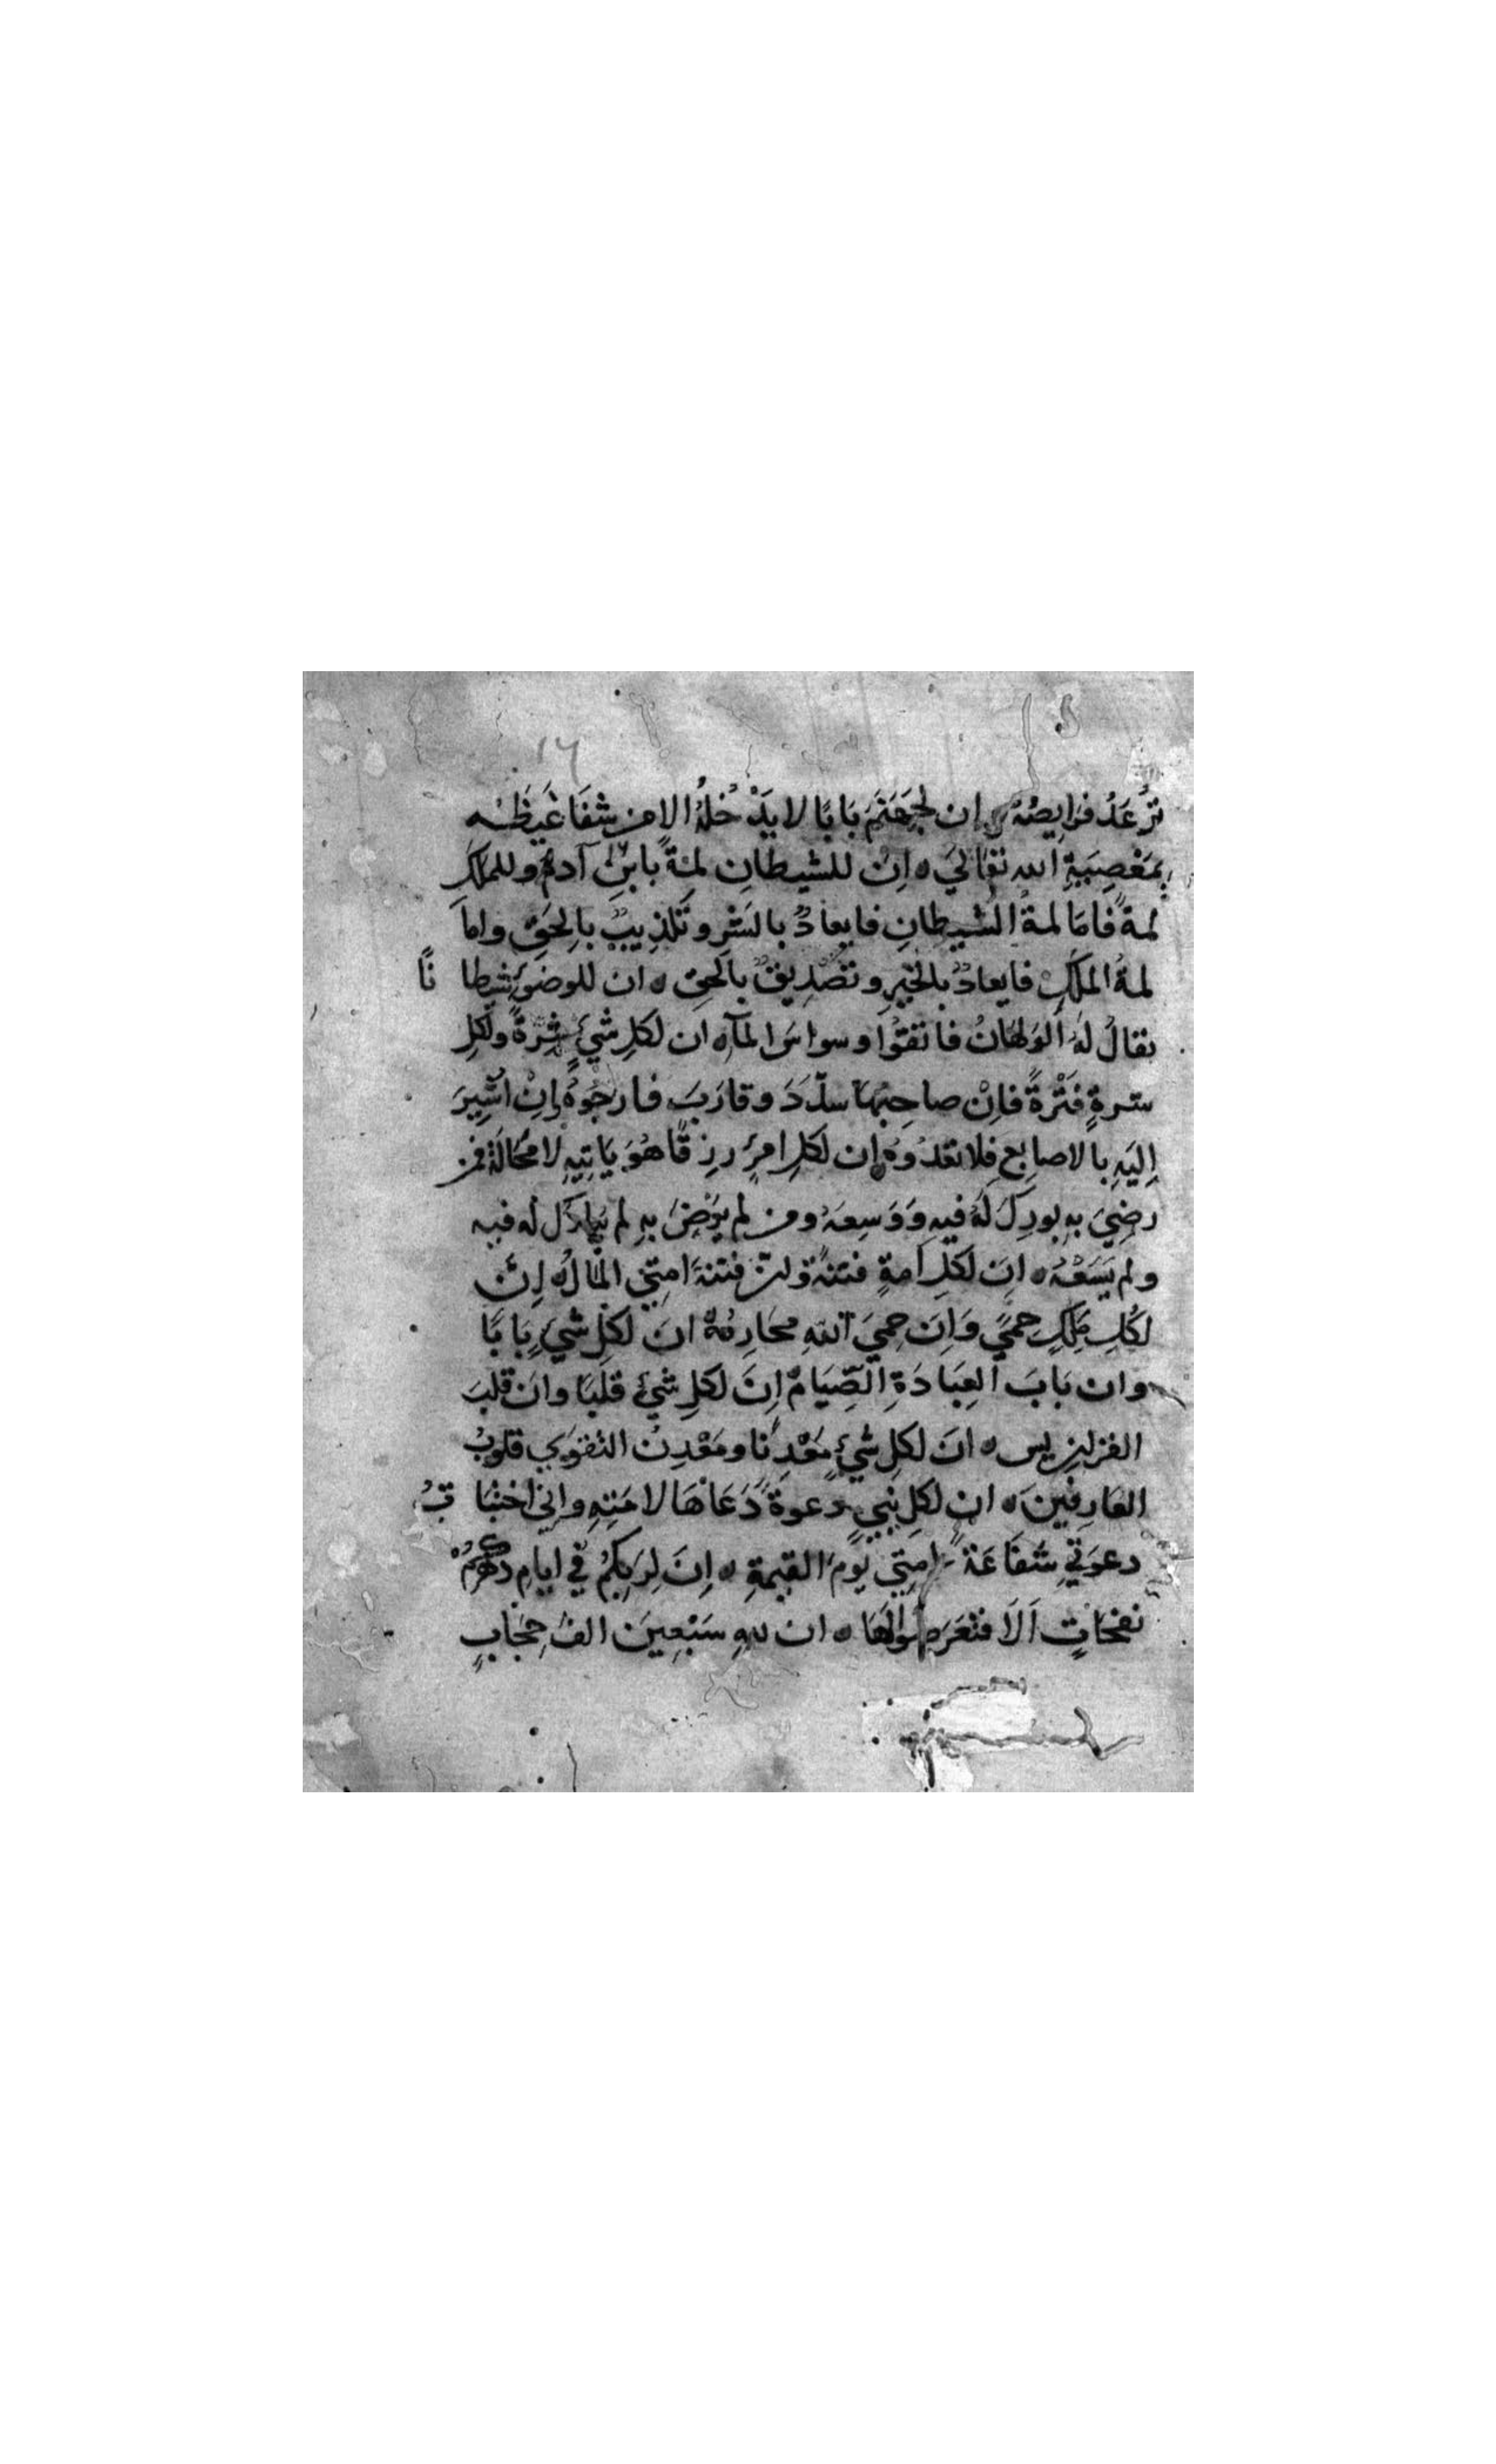 ١٦
تُرْعَدُ فرَايِصُهُ ه ان لجَهَنَمَ بَابًا لا يَدْخُلُهُ الا من شفَا غَيظَهُ
بمَعْصِيَةِ الله تعَاليَ ه اِنّ للشيطانِ لمةً بابنِ آدمَ وللملَكِ
لمةً فامَا لمةُ الشيطانِ فايعادٌ بالشرِ وتكذِيبٌ بالحَقِ واما
لمةُ الملَكِ فايعادٌ بالخيرِ وتصْدِيقٌ بالحقِ ه ان للوضوءِ شيطانًا
يقالُ لهُ الوَلهَانُ فاتقوُا وسواسَ المآءِ ه ان لكلِ شيءٍ شِرةً ولكلِ
شرةٍ فَتْرةً فاِنْ صاحِبُهَا سدَّدَ وقارَبَ فارجُوهُ واِنْ اُشِيرَ
اِليَهِ بالاصابِع فلا تعدُوهُ ه اِن لكلِ امرِءٍ رزِقًا هُوَ يَاتِيهِ لا محَالَةَ فمن
رضِيَ بهِ بورِكَ لَهُ فيهِ وَوَسِعَهُ ومن لم يَرْضَ بهِ لم يبارَك له فيه
ولم يَسَعْهُ ه انَ لكلِ اُمةٍ فتنةً وانّ فتنةَ امتِي المَالُ ه اِنّ
لكُلِ مَلِكٍ حِميً وَاِنَ حِميَ اللهِ محَارِمُهُ ه انَ لكلِ شيءٍ بَابًا
وان بَابَ العِبَادَةِ الصِّيَامُ اِنَ لكلِ شيءٍ قلبًا وانَ قلبَ
القرانِ يس ه انَ لكلِ شيءٍ مَعْدِنًا ومَعْدِنُ التقوَي قلوبُ
العَارِفِينَ ه ان لكلِ نبيٍ دعوةً دَعَا بهَا لامَتِهِ واِني اختبَاتُ
دعوَتي شفَاعَةً لامتِي يَومَ القيمةِ ه اِنَ لِرَبِكُمْ في ايامِ دَهْرِكُمْ
نفحَاتٍ اَلَا فتَعَرَضُوا لهَا ه ان للهِ سَبْعِينَ الفَ حِجَابٍ